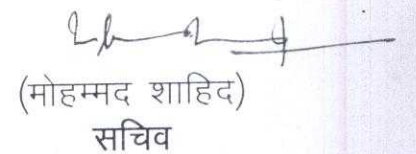 (मोहम्मद शाहिद)
सचिव